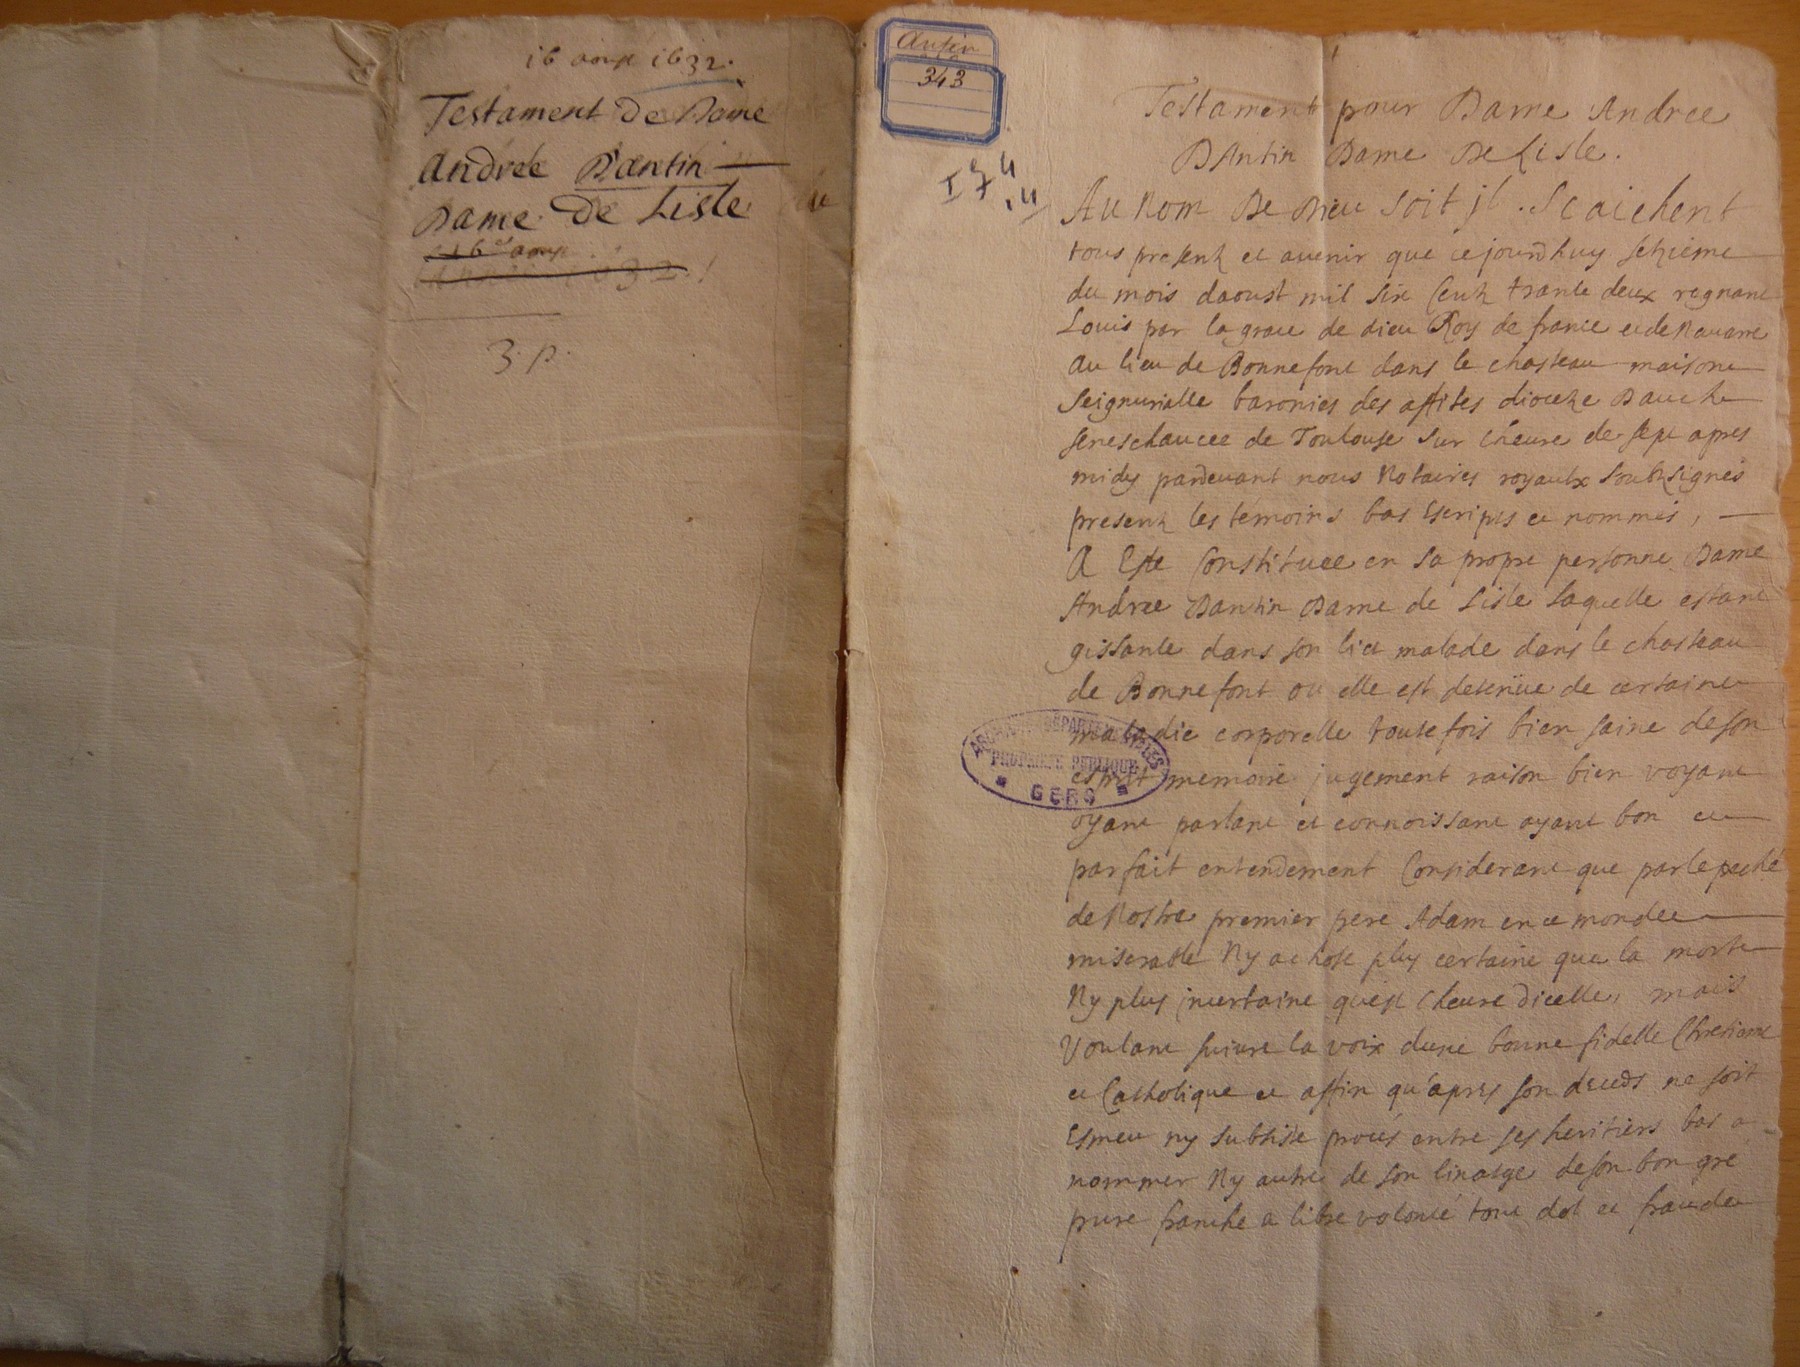 16 aoust 1632.
Testament de Dame
Andree Dantin
Dame De Lisle
16e aoust
1632
3. p.
Antin
343
I 7 4
Testament pour Dame Andree
DAntin Dame De Lisle.
Au Nom De Dieu soit jl. Scaichent
tous presentz et auenir que cejourdhuy setzieme
du mois daoust mil six centz trante deux regnant
Louis par la grace de dieu Roy de france et de Nauarre
au lieu de Bonnefont dans le chasteau maison
seignurialle baronies des affites dioceze Dauch
seneschaucee de Toulouse sur lheure de sept apres
midy pardeuant nous Notaires royaulx soubzsignes
presentz les temoins bas Escripts et nommés,
A Este Constituee en sa propre personne Dame
Andree Dantin Dame de Lisle laquelle estant
gissante dans son lict malade dans le chasteau
de Bonnefont ou elle est detenüe de certaine
maladie corporelle toutefois bien saine de son
esprit memoire jugement raison bien voyant
oyant parlant et connoissant ayant bon et
parfait entendement Considerant que par le peché
de Nostre premier pere Adam en ce monde
miserable Ny a chose plus certaine que la mort
Ny plus jncertaine quest lheure dicelle, mais
Voulant suiure la voix dune bonne fidelle Chrestiene
et Catholique et affin qu'apres son deceds ne soit
Esmeu ny subsiste procés entre ses heritiers bas a
nommer Ny autre de son linatge de son bon gre
pure franche a libre volonté tout dol et fraude
ARCHIVES DEPARTEMENTALES
PROPRIETE PUBLIQUE
GERS